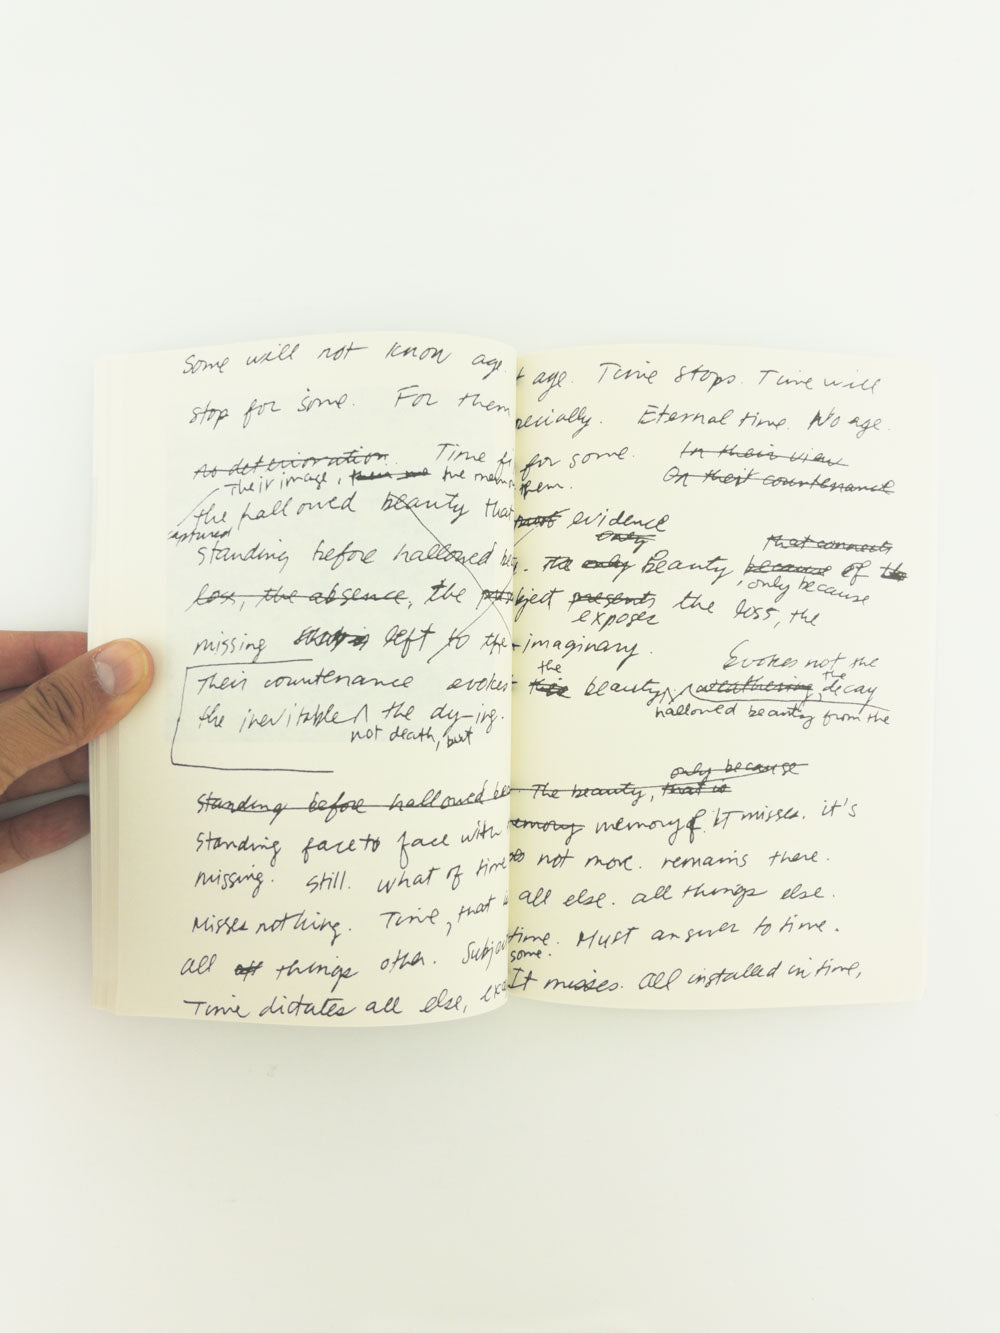 Some will not know age. t age. Time stops. Time will
stop for some. For them ecially. Eternal time. No age.
no deterioration. Time fi for some. In their view
On their countenance
Their image, the mem them.
the hallowed beauty that must evidence
captured only
that connects
standing before hallowed be y. The only beauty because of the
, only because
loss, the absence, the bject presents the loss, the
exposes
missing left to the imaginary.
Evokes not the
the the
Their countenance evokes beauty, weathering, decay
hallowed beauty from the
the inevitable the dy-ing.
not death, but
only because
Standing before hallowed bea The beauty, that is
Standing face to face with emory memory. It misses. it's
missing. Still. What of time not more. remains there.
Misses nothing. Time, that i all else. all things else.
All things other. Subje time. Must answer to time.
some.
Time dictates all else, exc It misses. All installed in time,